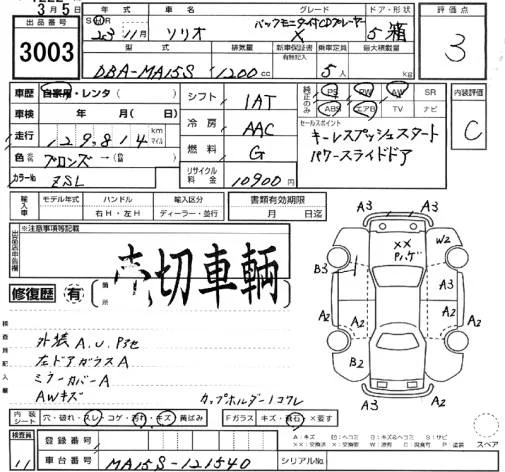 3月5日
出品番号
3003
年式 車名 グレード ドア・形状
バックモニタ付CDプレーヤー
11月 ソリオ X 5 箱
評価点
3
型式 排気量 新車保証書 乗車定員 最大積載量
有無記入
DBA-MA15S 1200cc 5人 kg
車歴 自家用・レンタ( )
車検 年 月( )
走行 129,814 km マイル
色 ブロンズ→( )
カラーNo ZSL
シフト 1AT
冷房 AAC
燃料 G
リサイクル料金 10900円
純正のみ PS PW AW SR
ABS エアB TV ナビ
セールスポイント
キーレスプッシュスタート
パワースライドドア
内装評価
C
輸入車 モデル年式 ハンドル 輸入区分
右H・左H ディーラー・並行
書類有効期限
月 日迄
※注意事項等記載
売切車輌
修復歴 有 箇所
A3
A3
W2
××
B3
A3
A2
A2
A2
A2
B2
A2
A3
A3
検査員記入欄
外装A.U.P3色
左ドアガラスA
ミラーカバーA
AWキズ
カップホルダー1コワレ
内装シート 穴・破れ・スレ・コゲ・汚れ・キズ・黄ばみ
Fガラス キズ・飛石・×要す
スペア
検査員
11
登録番号
車台番号 MA15S-121540
シリアルNo.